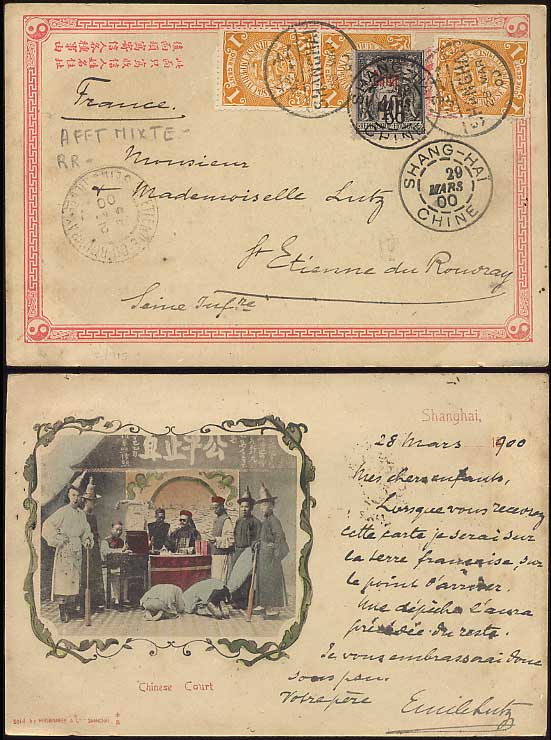 此面只冩收信人姓名住址
後面預寫寄信人之事由
France.
AFFT MIXTE -
RR -
Monsieur
& Mademoiselle Lutz
St Etienne du Rouvray
Seine Infre
SHANG-HAI
29
MARS
00
CHINE
Shanghai,
28 Mars 1900
Mes chers enfants,
Lorsque vous recevrez
cette carte je serai sur
la terre française, sur
le point d'arriver.
Une dépêche l'aura
précédée du reste.
Je vous embrasserai donc
sous peu.
Votre père
Emile Lutz
公平正直
Chinese Court